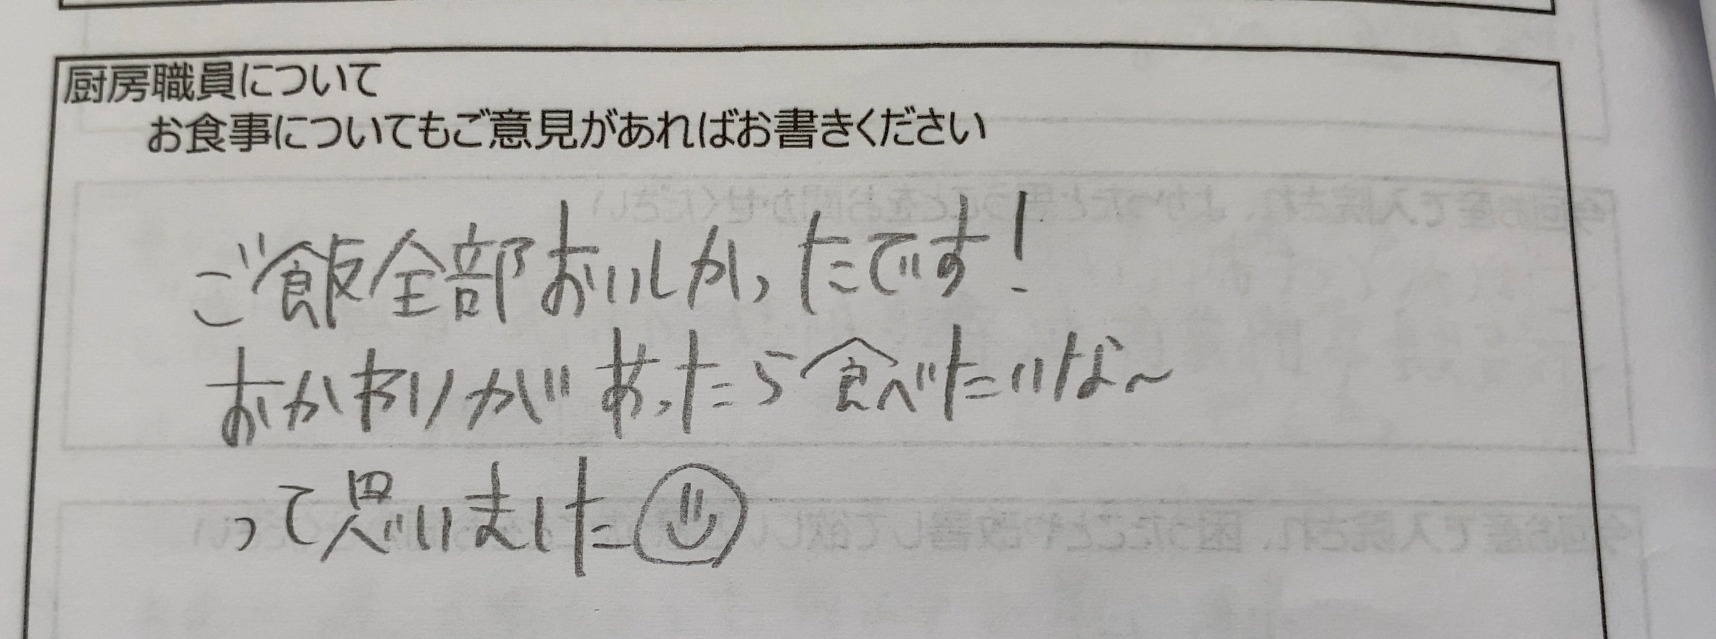 厨房職員について
お食事についてもご意見があればお書きください
ご飯全部おいしかったです!
おかわりがあったら食べたいな〜
って思いました